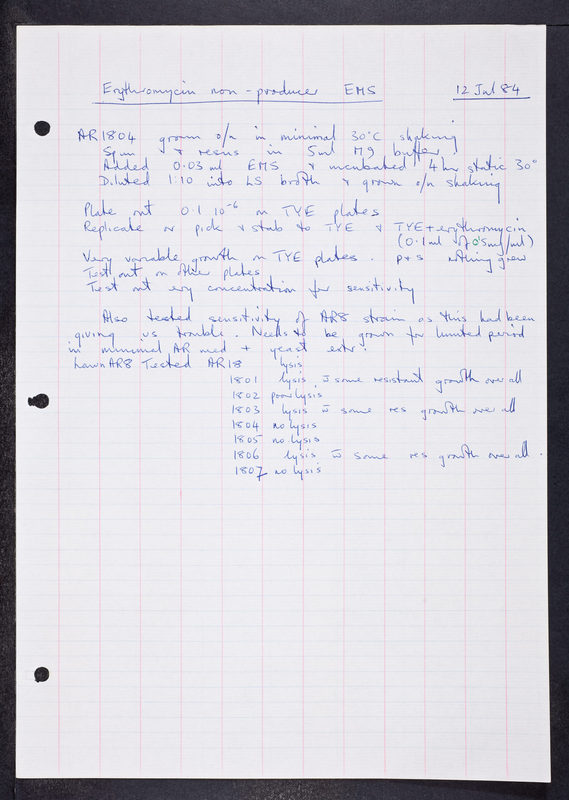 Erythromycin non-producer EMS 12 Jul 84
AR1804 grown o/n in minimal 30°C shaking
Spun & resus in 5ml M9 buffer
Added 0.03ml EMS & incubated 4hr static 30°
Diluted 1:10 into LS broth & grown o/n shaking
Plate out 0.1 10⁻⁶ on TYE plates
Replicate or pick & stab to TYE & TYE+erythromycin
(0.1ml of 0.5mg/ml)
Very variable growth on TYE plates. p+s nothing grew
Test out on other plates
Test out ery concentration for sensitivity
Also tested sensitivity of AR8 strain as this had been
giving us trouble. Needs to be grown for limited period
in minimal AR med + yeast extr.
Lawn AR8 Tested AR18 lysis
1801 lysis c̄ some resistant growth over all
1802 poor lysis
1803 lysis c̄ some res growth over all
1804 no lysis
1805 no lysis
1806 lysis c̄ some res growth over all.
1807 no lysis